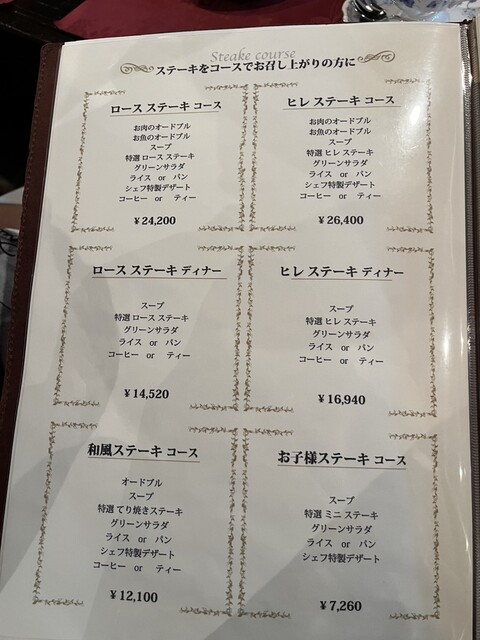 Steake course
ステーキをコースでお召し上がりの方に
ロース ステーキ コース
お肉のオードブル
お魚のオードブル
スープ
特選 ロース ステーキ
グリーンサラダ
ライス or パン
シェフ特製デザート
コーヒー or ティー
¥24,200
ヒレ ステーキ コース
お肉のオードブル
お魚のオードブル
スープ
特選 ヒレ ステーキ
グリーンサラダ
ライス or パン
シェフ特製デザート
コーヒー or ティー
¥26,400
ロース ステーキ ディナー
スープ
特選 ロース ステーキ
グリーンサラダ
ライス or パン
コーヒー or ティー
¥14,520
ヒレ ステーキ ディナー
スープ
特選 ヒレ ステーキ
グリーンサラダ
ライス or パン
コーヒー or ティー
¥16,940
和風ステーキ コース
オードブル
スープ
特選 てり焼きステーキ
グリーンサラダ
ライス or パン
シェフ特製デザート
コーヒー or ティー
¥12,100
お子様ステーキ コース
スープ
特選 ミニ ステーキ
グリーンサラダ
ライス or パン
シェフ特製デザート
¥7,260